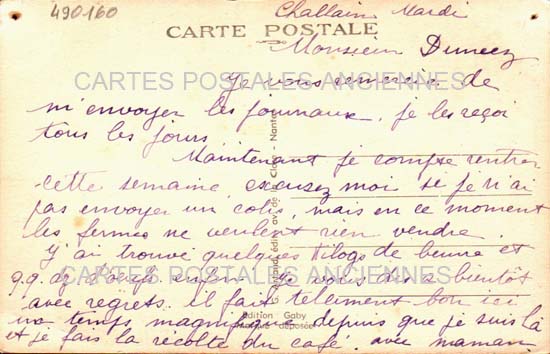 490160
Challain Mardi
CARTE POSTALE
Monsieur
CARTES POSTALES ANCIENNES
Je vous remercie de
m'envoyer les journaux, je les reçoi
tous les jours
Maintenant je compte rentrer
cette semaine, excusez moi si je n'ai
pas envoyer un colis, mais en ce moment
les fermes ne veulent rien vendre.
J'ai trouvé quelques kilogs de beurre et
q.q. dz d'œufs enfin je vous dis a bientôt
CARTES POSTALES ANCIENNES
avec regrets. il fait tellement bon ici
un temps magnifique depuis que je suis là
et je fais la récolte du café avec maman
édit., av. de la Close - Nantes
Edition Gaby
déposée